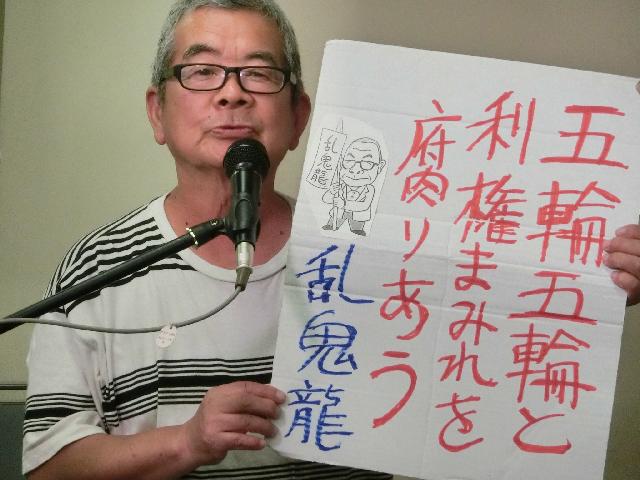 五輪五輪と
利権まみれを
腐りあう
乱鬼龍
乱鬼龍